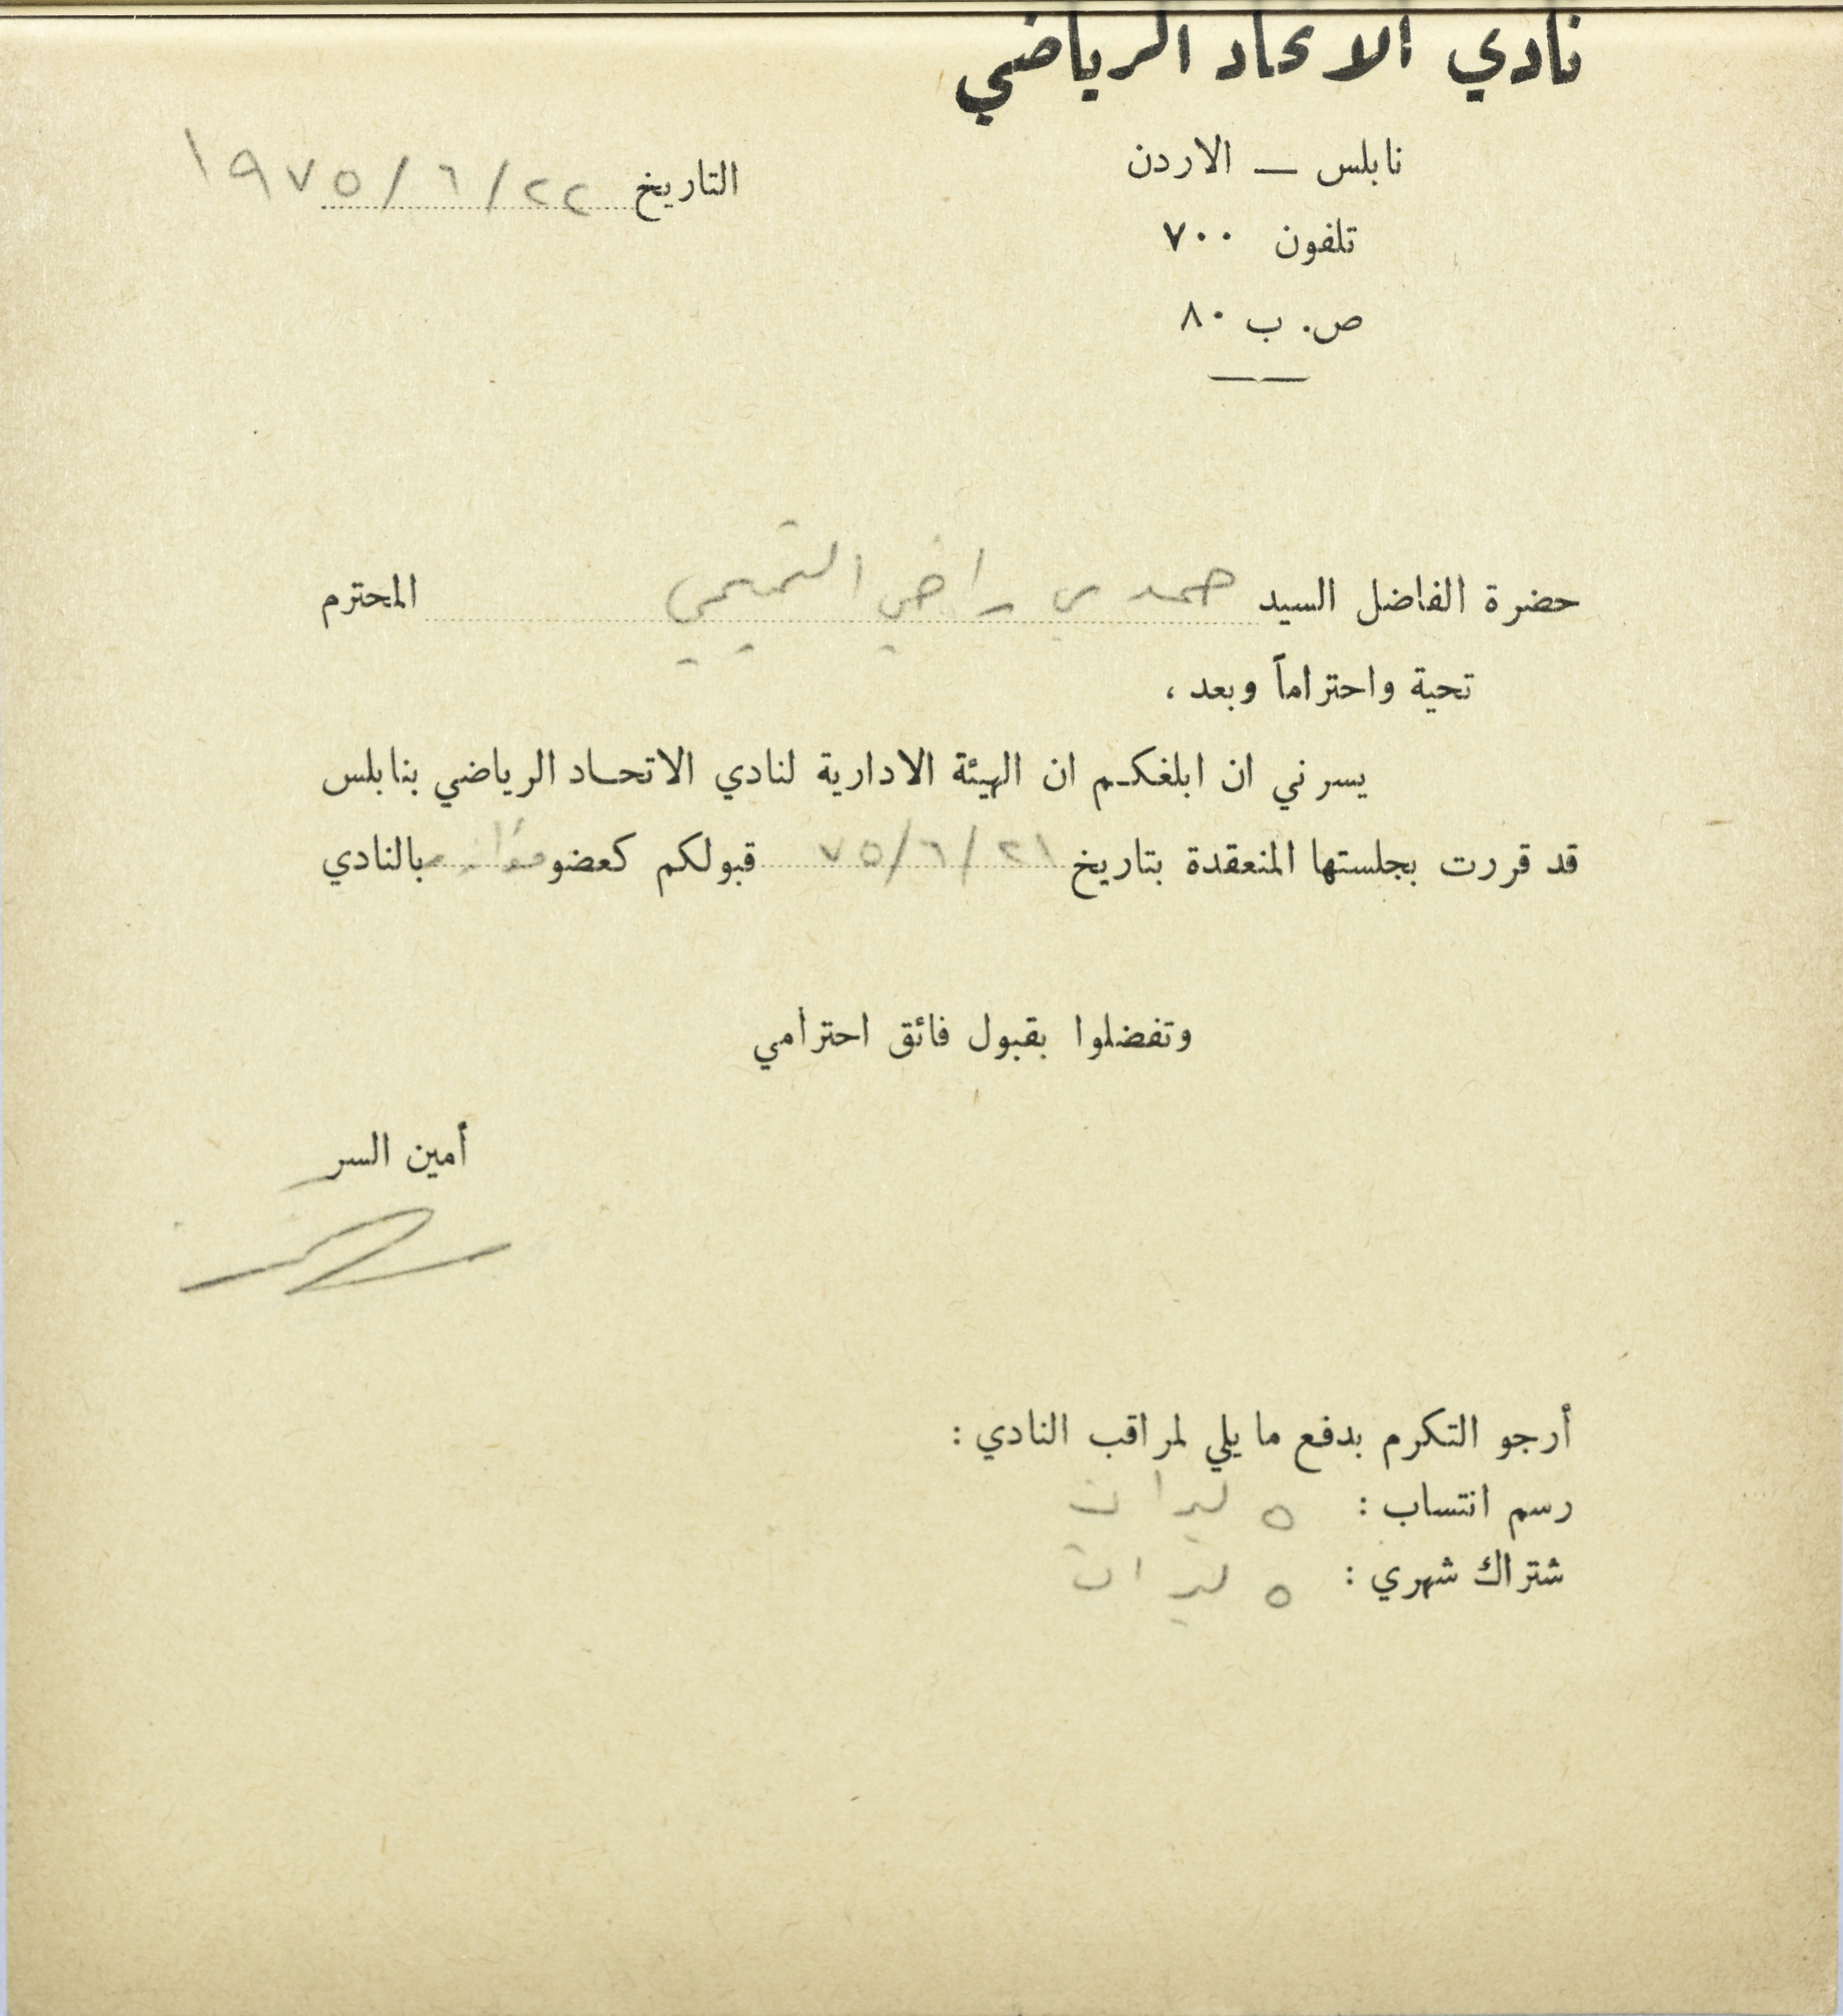 نادي الاتحاد الرياضي
نابلس — الاردن
التاريخ ٢٢/٦/١٩٧٥
تلفون ٧٠٠
ص. ب ٨٠
حضرة الفاضل السيد حمدي راضي التميمي المحترم
تحية واحتراماً وبعد ،
يسرني ان ابلغكم ان الهيئة الادارية لنادي الاتحاد الرياضي بنابلس
قد قررت بجلستها المنعقدة بتاريخ ٢١/٦/٧٥ قبولكم كعضو بالنادي
وتفضلوا بقبول فائق احترامي
أمين السر
أرجو التكرم بدفع ما يلي لمراقب النادي :
رسم انتساب : ٥ ليرات
شتراك شهري : ٥ ليرات